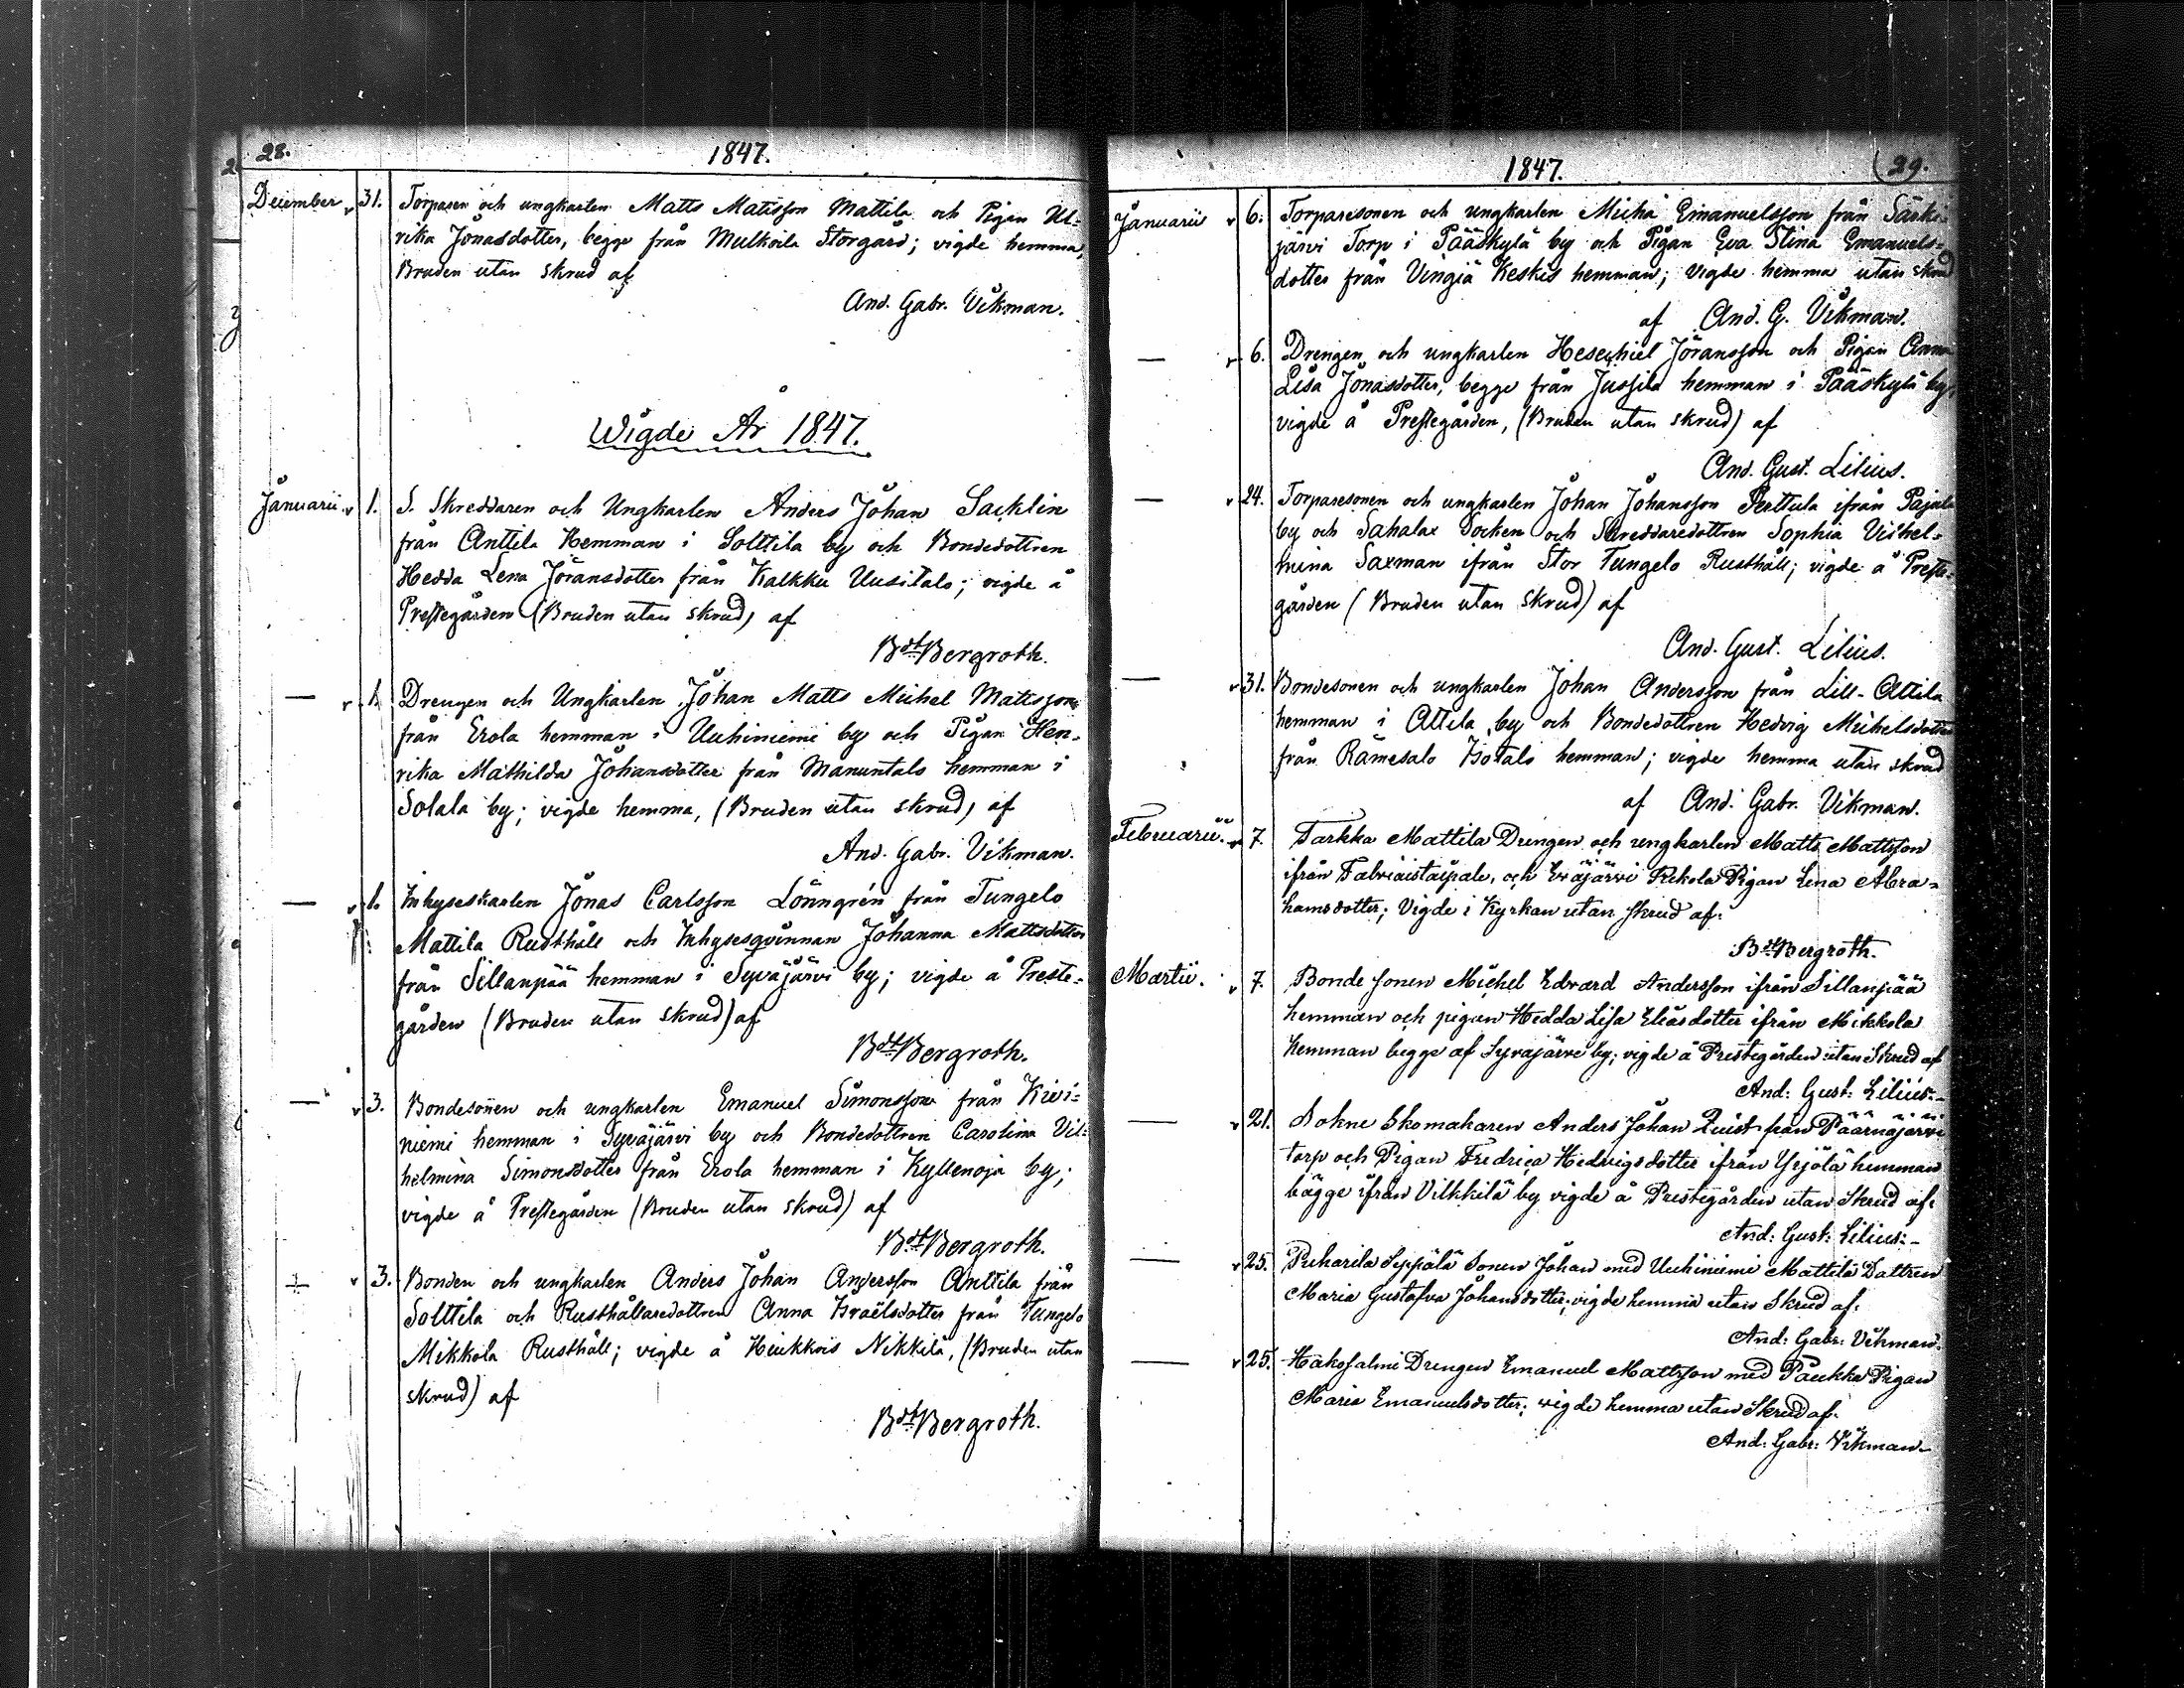 28.
1847.
December 31. Torparen och ungkarlen Matts Matisson Mattila och Pigan Ul=
rika Jönasdotter, begge från Mulkoila Storgård; vigde hemma,
Bruden utan skrud af
And. Gabr. Vikman.
Wigde År 1847.
Januarii. v 1. S. Skreddaren och Ungkarlen Anders Johan Sacklin
från Anttila Hemman i Solttila by och Bondedottren
Hedda Lena Jöransdotter från Kalkku Uusitalo; vigde å
Prestegården (Bruden utan skrud) af
Bdt Bergroth.
— v 1. Drengen och Ungkarlen Johan Matts Michel Mattsson
från Erola hemman i Uuhiniemi by och Pigan Hen=
rika Mathilda Johansdotter från Manuntalo hemman i
Solala by; vigde hemma, (Bruden utan skrud) af
And. Gabr. Vikman.
— v 1. Inhyseskarlen Jonas Carlsson Lönngrén från Tungelo
Mattila Rusthåll och Inhysesqvinnan Johanna Mattsdotter
från Sillanpää hemman i Syväjärvi by; vigde å Preste=
gården (Bruden utan skrud) af
Bdt Bergroth.
— v 3. Bondesonen och ungkarlen Emanuel Simonsson från Kivi=
niemi hemman i Syväjärvi by och Bondedottren Carolina Vil=
helmina Simonsdotter från Erola hemman i Kyllenoja by;
vigde å Prestegården (Bruden utan skrud) af
Bdt Bergroth.
— v 3. Bonden och ungkarlen Anders Johan Andersson Anttila från
Solttila och Rusthållaredottren Anna Israëlsdotter från Tungelo
Mikkola Rusthåll; vigde å Heikkois Nikkilä, (Bruden utan
skrud) af
Bdt Bergroth.
1847.
29.
Januarii v 6. Torparesonen och ungkarlen Micha Emanuelsson från Särki=
järvi Torp i Pääskylä by och Pigan Eva Stina Emanuels=
dotter från Vingiä Keskis hemman; vigde hemma utan skrud
af And. G. Vikman.
— v 6. Drengen och ungkarlen Hesechiel Jöransson och Pigan Anna
Lisa Jonasdotter, begge från Jussila hemman i Pääskylä by,
vigde å Prestegården, (Bruden utan skrud) af
And. Gust. Lilius.
— v 24. Torparesonen och ungkarlen Johan Johansson Perttula ifrån Pajula
by och Sahalax Socken och Skreddaredottren Sophia Vilhel=
mina Saxman ifrån Stor Tungelo Rusthåll; vigde å Preste=
gården (Bruden utan skrud) af
And. Gust. Lilius.
— v 31. Bondesonen och ungkarlen Johan Andersson från Lill-Attila
hemman i Attila by och Bondedottren Hedvig Michelsdotter
från Rämesalo Isotalo hemman; vigde hemma utan skrud
af And. Gabr. Vikman.
Februarii. v 7. Tarkka Mattila Drengen och ungkarlen Matts Mattsson
ifrån och Eväjärvi Pigan Lena Abra=
hamsdotter; Vigde i Kyrkan utan skrud af.
Bdt Bergroth.
Martii. v 7. Bonde sonen Michel Edvard Andersson ifrån Sillanpää
hemman och pigan Hedda Lisa Eliasdotter ifrån Mikkola
hemman begge af Syväjärvi by; vigde å Prestegården utan Skrud af
And: Gust: Lilius:-
— v 21. Sokne Skomakaren Anders Johan Quist från Päärnäjärvi
torp och Pigan Fredrica Hedvigsdotter ifrån Yrjölä hemman
bägge ifrån Vilkkilä by vigde å Prestegården utan Skrud af.
And: Gust: Lilius:-
— v 25. Puharila Seppälä Sonen Johan med Uuhiniemi Mattila Dottren
Maria Gustafva Johansdotter; vigde hemma utan Skrud af.
And: Gabr: Vikman.
— v 25. Hakosalmi Drengen Emanuel Mattsson med Paukku Pigan
Maria Emanuelsdotter; vigde hemma utan Skrud af.
And: Gabr: Vikman